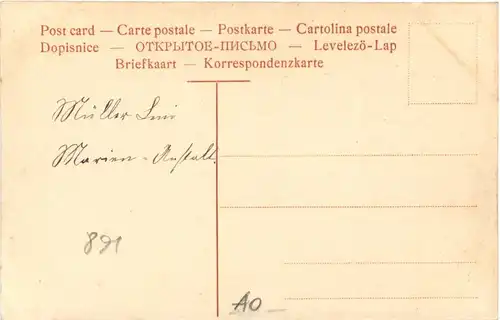 Post card — Carte postale — Postkarte — Cartolina postale
Dopisnice — ОТКРЫТОЕ-ПИСЬМО — Levelező-Lap
Briefkaart — Korrespondenzkarte
Müller
Marien-Anstalt.
891
AO